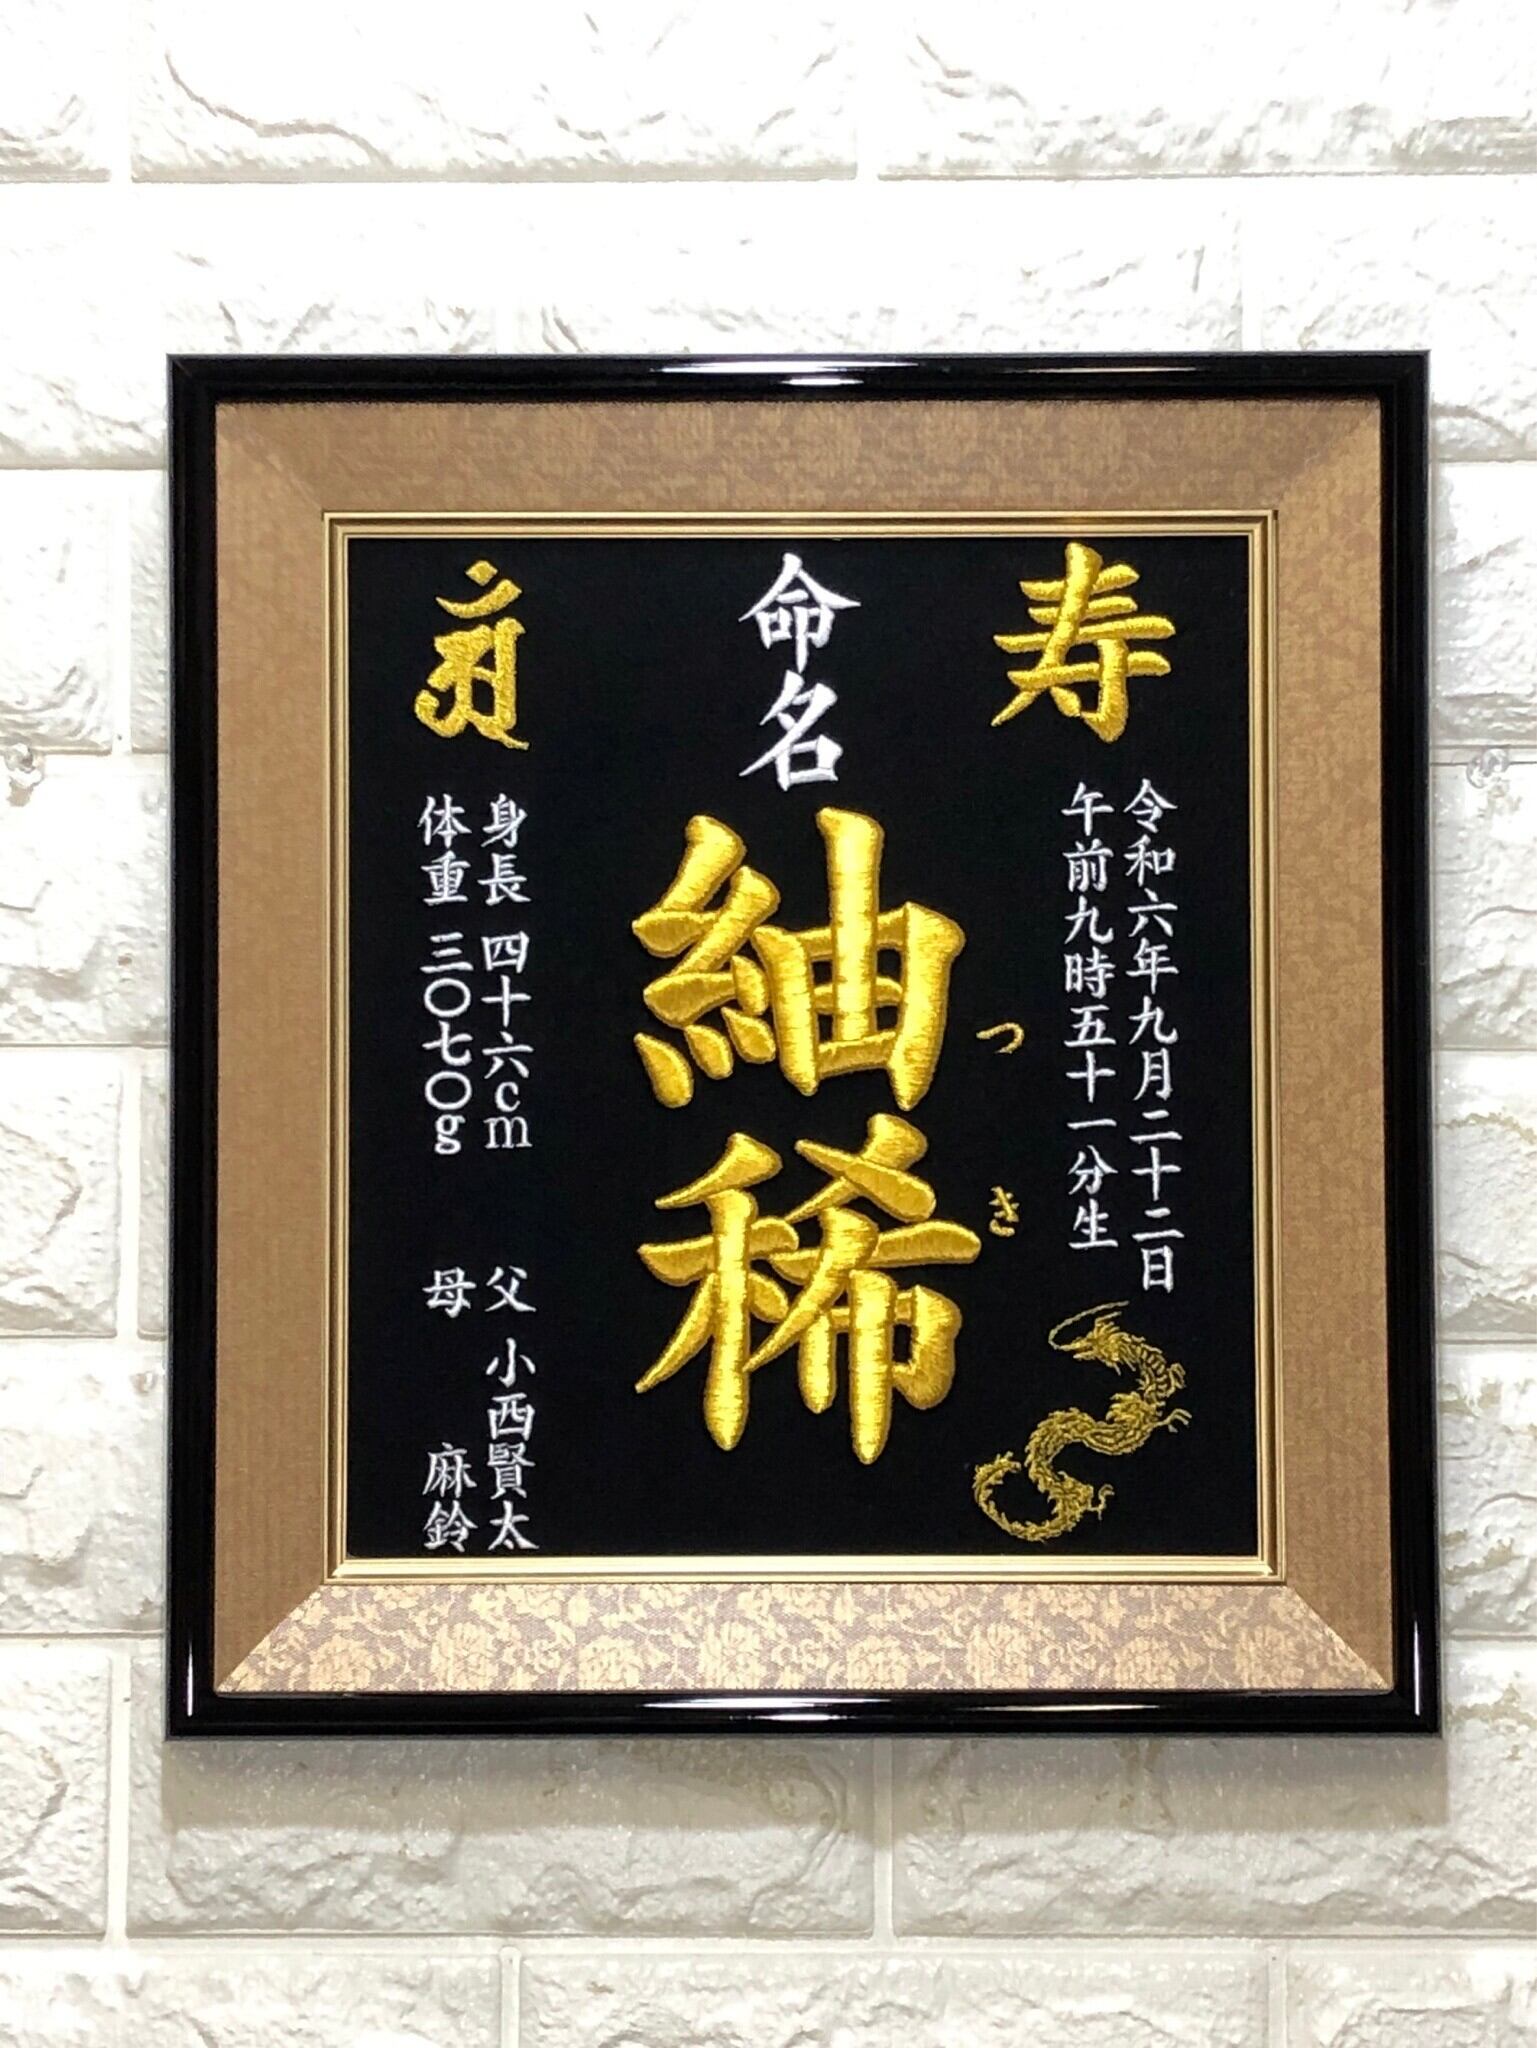 寿
令和六年九月二十二日
午前九時五十一分生
命名
紬稀
つき
身長 四十六cm
体重 三〇七〇g
父 小西賢太
母 麻鈴